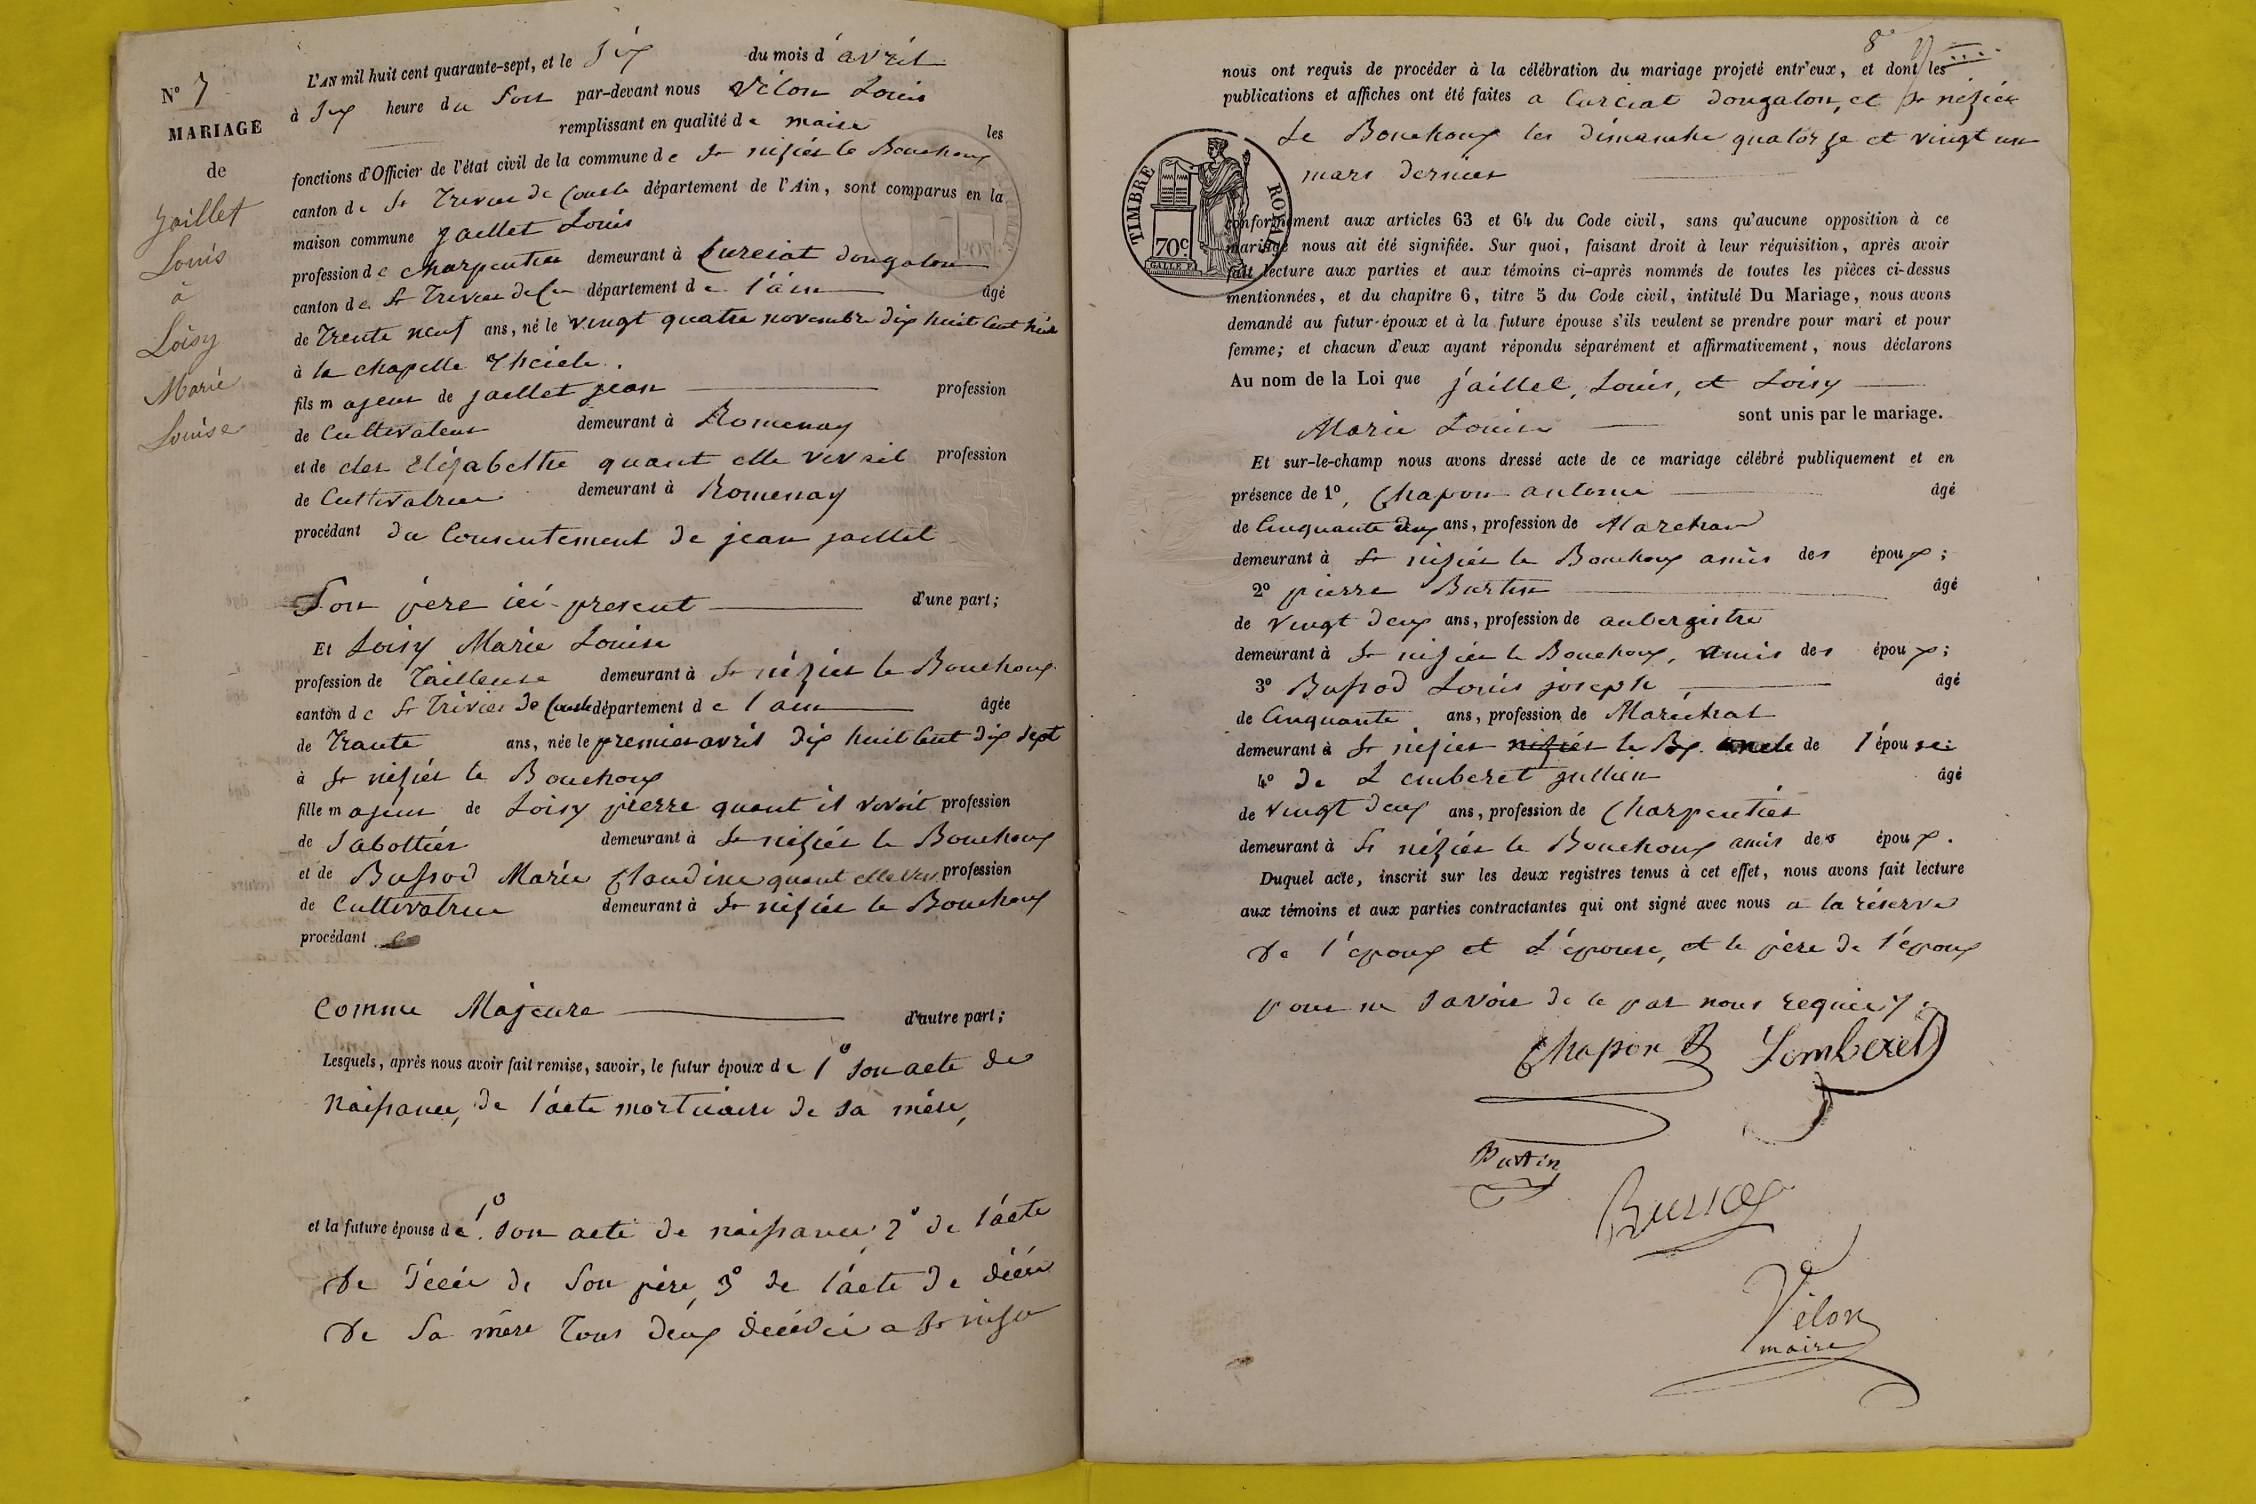 N° 7
MARIAGE
de
Jaillet
Louis
à
Loisy
Marie
Louise
L'AN mil huit cent quarante-sept, et le six du mois d'avril
à six heure du soir par-devant nous Vélon Louis
remplissant en qualité de maire les
fonctions d'Officier de l'état civil de la commune de St nizier le Bouchoux
canton de St Trivier de Courte département de l'Ain, sont comparus en la
maison commune jaillet Louis
profession de charpentier demeurant à Curciat dongalon
canton de St Trivier de Cou département de l'ain âgé
de Trente neuf ans, né le vingt quatre novembre dix huit cent huit
à la chapelle Thecle.
fils majeur de jaillet jean profession
de Cultivateur demeurant à Romenay
et de cler Elizabethe quant elle vivait profession
de Cultivatrice demeurant à Romenay
procédant du Consentement de jean jaillet
Son père ici present d'une part;
Et Loisy Marie Louise
profession de Tailleuse demeurant à St nizier le Bouchoux
canton de St Trivier de Courte département de l'ain âgée
de Trante ans, née le premier avril dix huit Cent dix sept
à St nizier le Bouchoux
fille majeur de Loisy pierre quant il vivoit profession
de Sabottier demeurant à St nizier le Bouchoux
et de Bussod Marie Claudine quant elle viv. profession
de Cultivatrice demeurant à St nizier le Bouchoux
procédant
Comme Majeure d'autre part;
Lesquels, après nous avoir fait remise, savoir, le futur époux de 1° son acte de
Naissance, de l'acte mortuaire de sa mére,
et la future épouse de 1° son acte de naissance 2° de l'acte
de décée de son père, 3° de l'acte de décée
de sa mère Tous deux décédée a St nizier
8e
nous ont requis de procéder à la célébration du mariage projeté entr'eux, et dont les
publications et affiches ont été faites a Curciat dongalon, et St nizier
Le Bouchoux les dimanche quatorze et vingt un
mars dernier
TIMBRE ROYAL
70c
conformément aux articles 63 et 64 du Code civil, sans qu'aucune opposition à ce
mariage nous ait été signifiée. Sur quoi, faisant droit à leur réquisition, après avoir
fait lecture aux parties et aux témoins ci-après nommés de toutes les pièces ci-dessus
mentionnées, et du chapitre 6, titre 5 du Code civil, intitulé Du Mariage, nous avons
demandé au futur-époux et à la future épouse s'ils veulent se prendre pour mari et pour
femme; et chacun d'eux ayant répondu séparément et affirmativement, nous déclarons
Au nom de la Loi que jaillet, Louis, et Loisy
Marie Louise sont unis par le mariage.
Et sur-le-champ nous avons dressé acte de ce mariage célébré publiquement et en
présence de 1°, Chapon antoine âgé
de Cinquante deux ans, profession de Marechal
demeurant à St nizier le Bouchoux amis des époux;
2° pierre Burtin âgé
de vingt deux ans, profession de aubergiste
demeurant à St nizier le Bouchoux, amis des époux;
3° Bussod Louis joseph, âgé
de Cinquante ans, profession de Maréchal
demeurant à St nizier nizier le Bx. oncle de l'épouse;
4° de Lemberet jullien âgé
de vingt deux ans, profession de Charpentier
demeurant à St nizier le Bouchoux amis des époux.
Duquel acte, inscrit sur les deux registres tenus à cet effet, nous avons fait lecture
aux témoins et aux parties contractantes qui ont signé avec nous a la réserve
de l'epoux et L'épouse, et le père de l'époux
pour ne savoir de ce par nous requis.
Chapon Lemberet
Burtin
Bussod
Vélon
maire